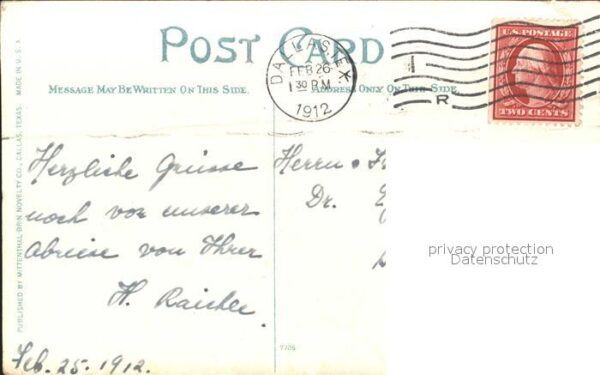 POST CARD
MESSAGE MAY BE WRITTEN ON THIS SIDE.
ADDRESS ONLY ON THIS SIDE.
DALLAS, TEX
FEB 26
1 30 PM
1912
1
R
U.S. POSTAGE
TWO CENTS
PUBLISHED BY MITTENTHAL-BRIN NOVELTY CO., DALLAS, TEXAS. MADE IN U.S.A.
Herzliche Grüsse
noch vor unserer
Abreise von Ihrer
H.
Feb. 25. 1912.
Herrn
Dr.
7705
privacy protection
Datenschutz